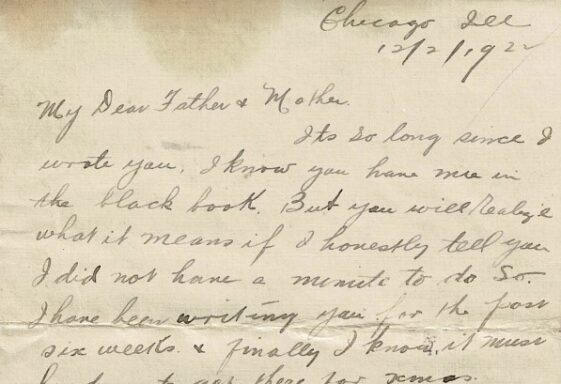 Chicago Ill
12/2/1922
My Dear Father & Mother.
Its so long since I
wrote you. I know you have me in
the black book. But you will realize
what it means if I honestly tell you
I did not have a minute to do so.
I have been writing you for the past
six weeks. & finally I know, it must
to get there for xmas.